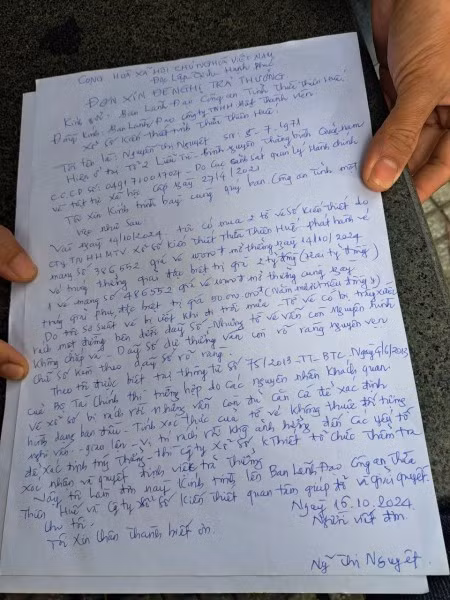 CỘNG HOÀ XÃ HỘI CHỦ NGHĨA VIỆT NAM
Độc Lập Tự Do Hạnh Phúc
ĐƠN XIN ĐỀ NGHỊ TRẢ THƯỞNG
Kính gửi: Ban Lãnh Đạo Công an Tỉnh Thừa Thiên Huế.
Đồng kính Ban Lãnh Đạo Công ty TNHH Một thành viên
Xổ số Kiến Thiết tỉnh Thừa Thiên Huế.
Tôi tên là: Nguyễn Thị Nguyệt sn: 8-7-1971
Hiện ở tại Tổ 2 Bình Nguyên Thăng Bình Quảng Nam
C.C.C.D số: Do Cục Cảnh sát quản lý Hành chính
về trật tự xã hội cấp ngày 27/4/2021
Tôi Xin Kính trình bày cùng quý ban Công an Tỉnh một
việc như sau:
Vào ngày 14/10/2024 tôi có mua 2 tờ vé số Kiến Thiết do
CTy TNHHMTV Xổ số Kiến Thiết Thừa Thiên Huế phát hành vé
mang số 386552 giá vé 10.000đ mở thưởng ngày 14/10/2024
vé trúng thưởng giải đặc biệt trị giá 2 tỷ đồng (Hai tỷ đồng)
1 vé mang số 486552 giá vé 10.000đ mở thưởng cùng ngày
trúng giải phụ đặc biệt trị giá 50.000.000đ (Năm mươi triệu đồng)
Do tôi sơ suất và bị ướt khi đi trời mưa. Tờ vé có bị trầy xước
rách một đường bên dưới dãy số. Nhưng tờ vé vẫn còn nguyên hình
không chấp vá. Dãy số dự thưởng vẫn còn rõ ràng nguyên vẹn
chữ số kèm theo dãy số rõ ràng.
Theo tôi được biết tại thông tư số 75/2013-TT-BTC. Ngày 4/6/2013
của Bộ Tài Chính thì trường hợp do các nguyên nhân khách quan
vé xổ số bị rách rời nhưng vẫn còn đủ căn cứ để xác định
hình dạng ban đầu. Tính xác thực của tờ vé không thuộc đối tượng
nghi vấn gian lận. Vị trí rách rời không ảnh hưởng đến các yếu tố
để xác định trúng Thưởng thì Công ty Xổ Số KThiết tổ chức Thẩm tra
xác nhận và quyết định việc trả Thưởng
Nay tôi làm đơn này kính trình lên Ban Lãnh Đạo Công an Thừa
Thiên Huế và Cty Xổ số Kiến thiết quan tâm giúp đỡ và giải quyết
cho tôi.
Ngày 16.10.2024
Tôi Xin Chân Thành biết ơn.
Người viết đơn
Ng Thị Nguyệt